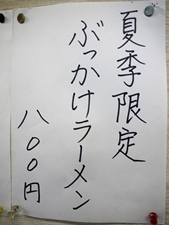 夏季限定
ぶっかけラーメン
八〇〇円